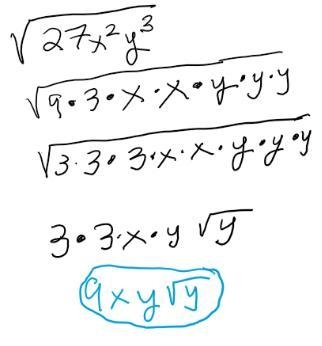 √27x²y³
√9•3•x•x•y•y•y
√3·3•3•x•x•y•y•y
3•3•x•y√y
9xy√y